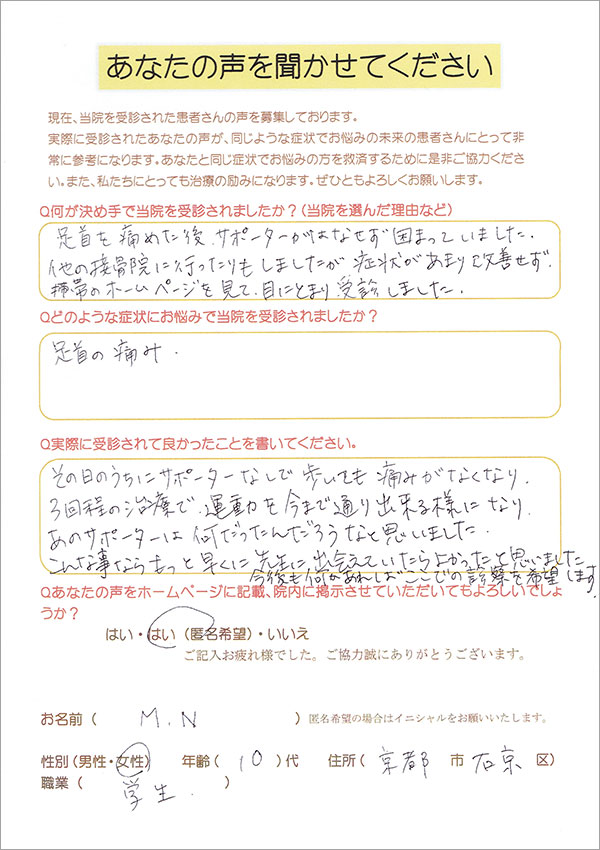 あなたの声を聞かせてください
現在、当院を受診された患者さんの声を募集しております。
実際に受診されたあなたの声が、同じような症状でお悩みの未来の患者さんにとって非
常に参考になります。あなたと同じ症状でお悩みの方を救済するために是非ご協力くださ
い。また、私たちにとっても治療の励みになります。ぜひともよろしくお願いします。
Q何が決め手で当院を受診されましたか？(当院を選んだ理由など)
足首を痛めた後、サポーターがはなせず困まっていました.
他の接骨院に行ったりもしましたが 症状があまり改善せず.
携帯のホームページを見て、目にとまり受診しました.
Qどのような症状にお悩みで当院を受診されましたか？
足首の痛み.
Q実際に受診されて良かったことを書いてください。
その日のうちにサポーターなしで歩いても痛みがなくなり.
3回程の治療で、運動を今まで通り出来る様になり.
あのサポーターは何だったんだろうなと思いました.
こんな事ならもっと早くに先生に出会えていたらよかったと思いました
今後も何かあればここでの診察を希望します.
Qあなたの声をホームページに記載、院内に掲示させていただいてもよろしいでしょ
うか？
はい・はい（匿名希望）・いいえ
ご記入お疲れ様でした。ご協力誠にありがとうございます。
お名前（ M.N ）匿名希望の場合はイニシャルをお願いいたします。
性別（男性・女性） 年齢（ 10 ）代 住所（ 京都 市 右京 区）
職業（ 学生. ）